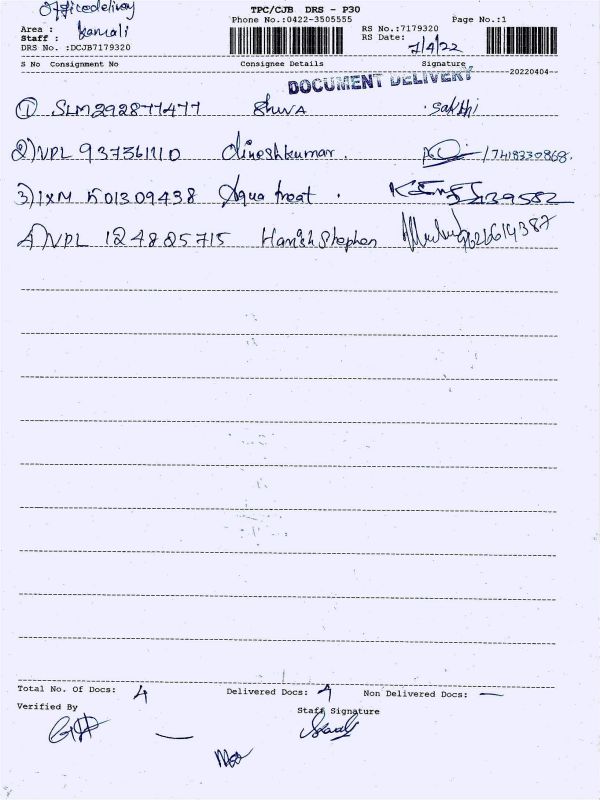 Officedelivery
TPC/CJB DRS - P30
Phone No.:0422-3505555 Page No.:1
Area :
Staff : kamali
RS No.:7179320
RS Date: 7/4/22
DRS No. :DCJB7179320
S No Consignment No Consignee Details Signature
20220404
DOCUMENT DELIVERY
① SLM292877477 Shiva sakthi
2) VPL 937361110 dineshkumar. /7418330868.
3) IXM 501309438 Aqua treat .
4) VPL 124825715 Harish Stephen 9626614387
Total No. Of Docs: 4 Delivered Docs: 4 Non Delivered Docs: —
Verified By Staff Signature